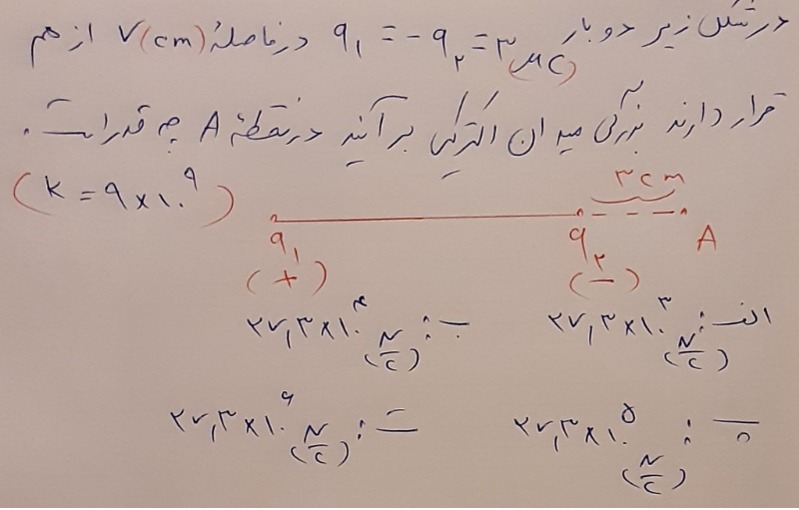 در شکل زیر دو بار q₁ = -q₂ = ۳ (μC) در فاصلهٔ ۷(cm) از هم
قرار دارند بزرگی میدان الکتریکی برآیند در نقطهٔ A چه قدر است.
(k = ۹×۱۰^۹)
۳cm
q₁ q₂ A
(+) (−)
الف: ۲۷,۳×۱۰^۳ (N/C) ب: ۲۷,۳×۱۰^۴ (N/C)
پ: ۲۷,۳×۱۰^۵ (N/C) ت: ۲۷,۳×۱۰^۶ (N/C)